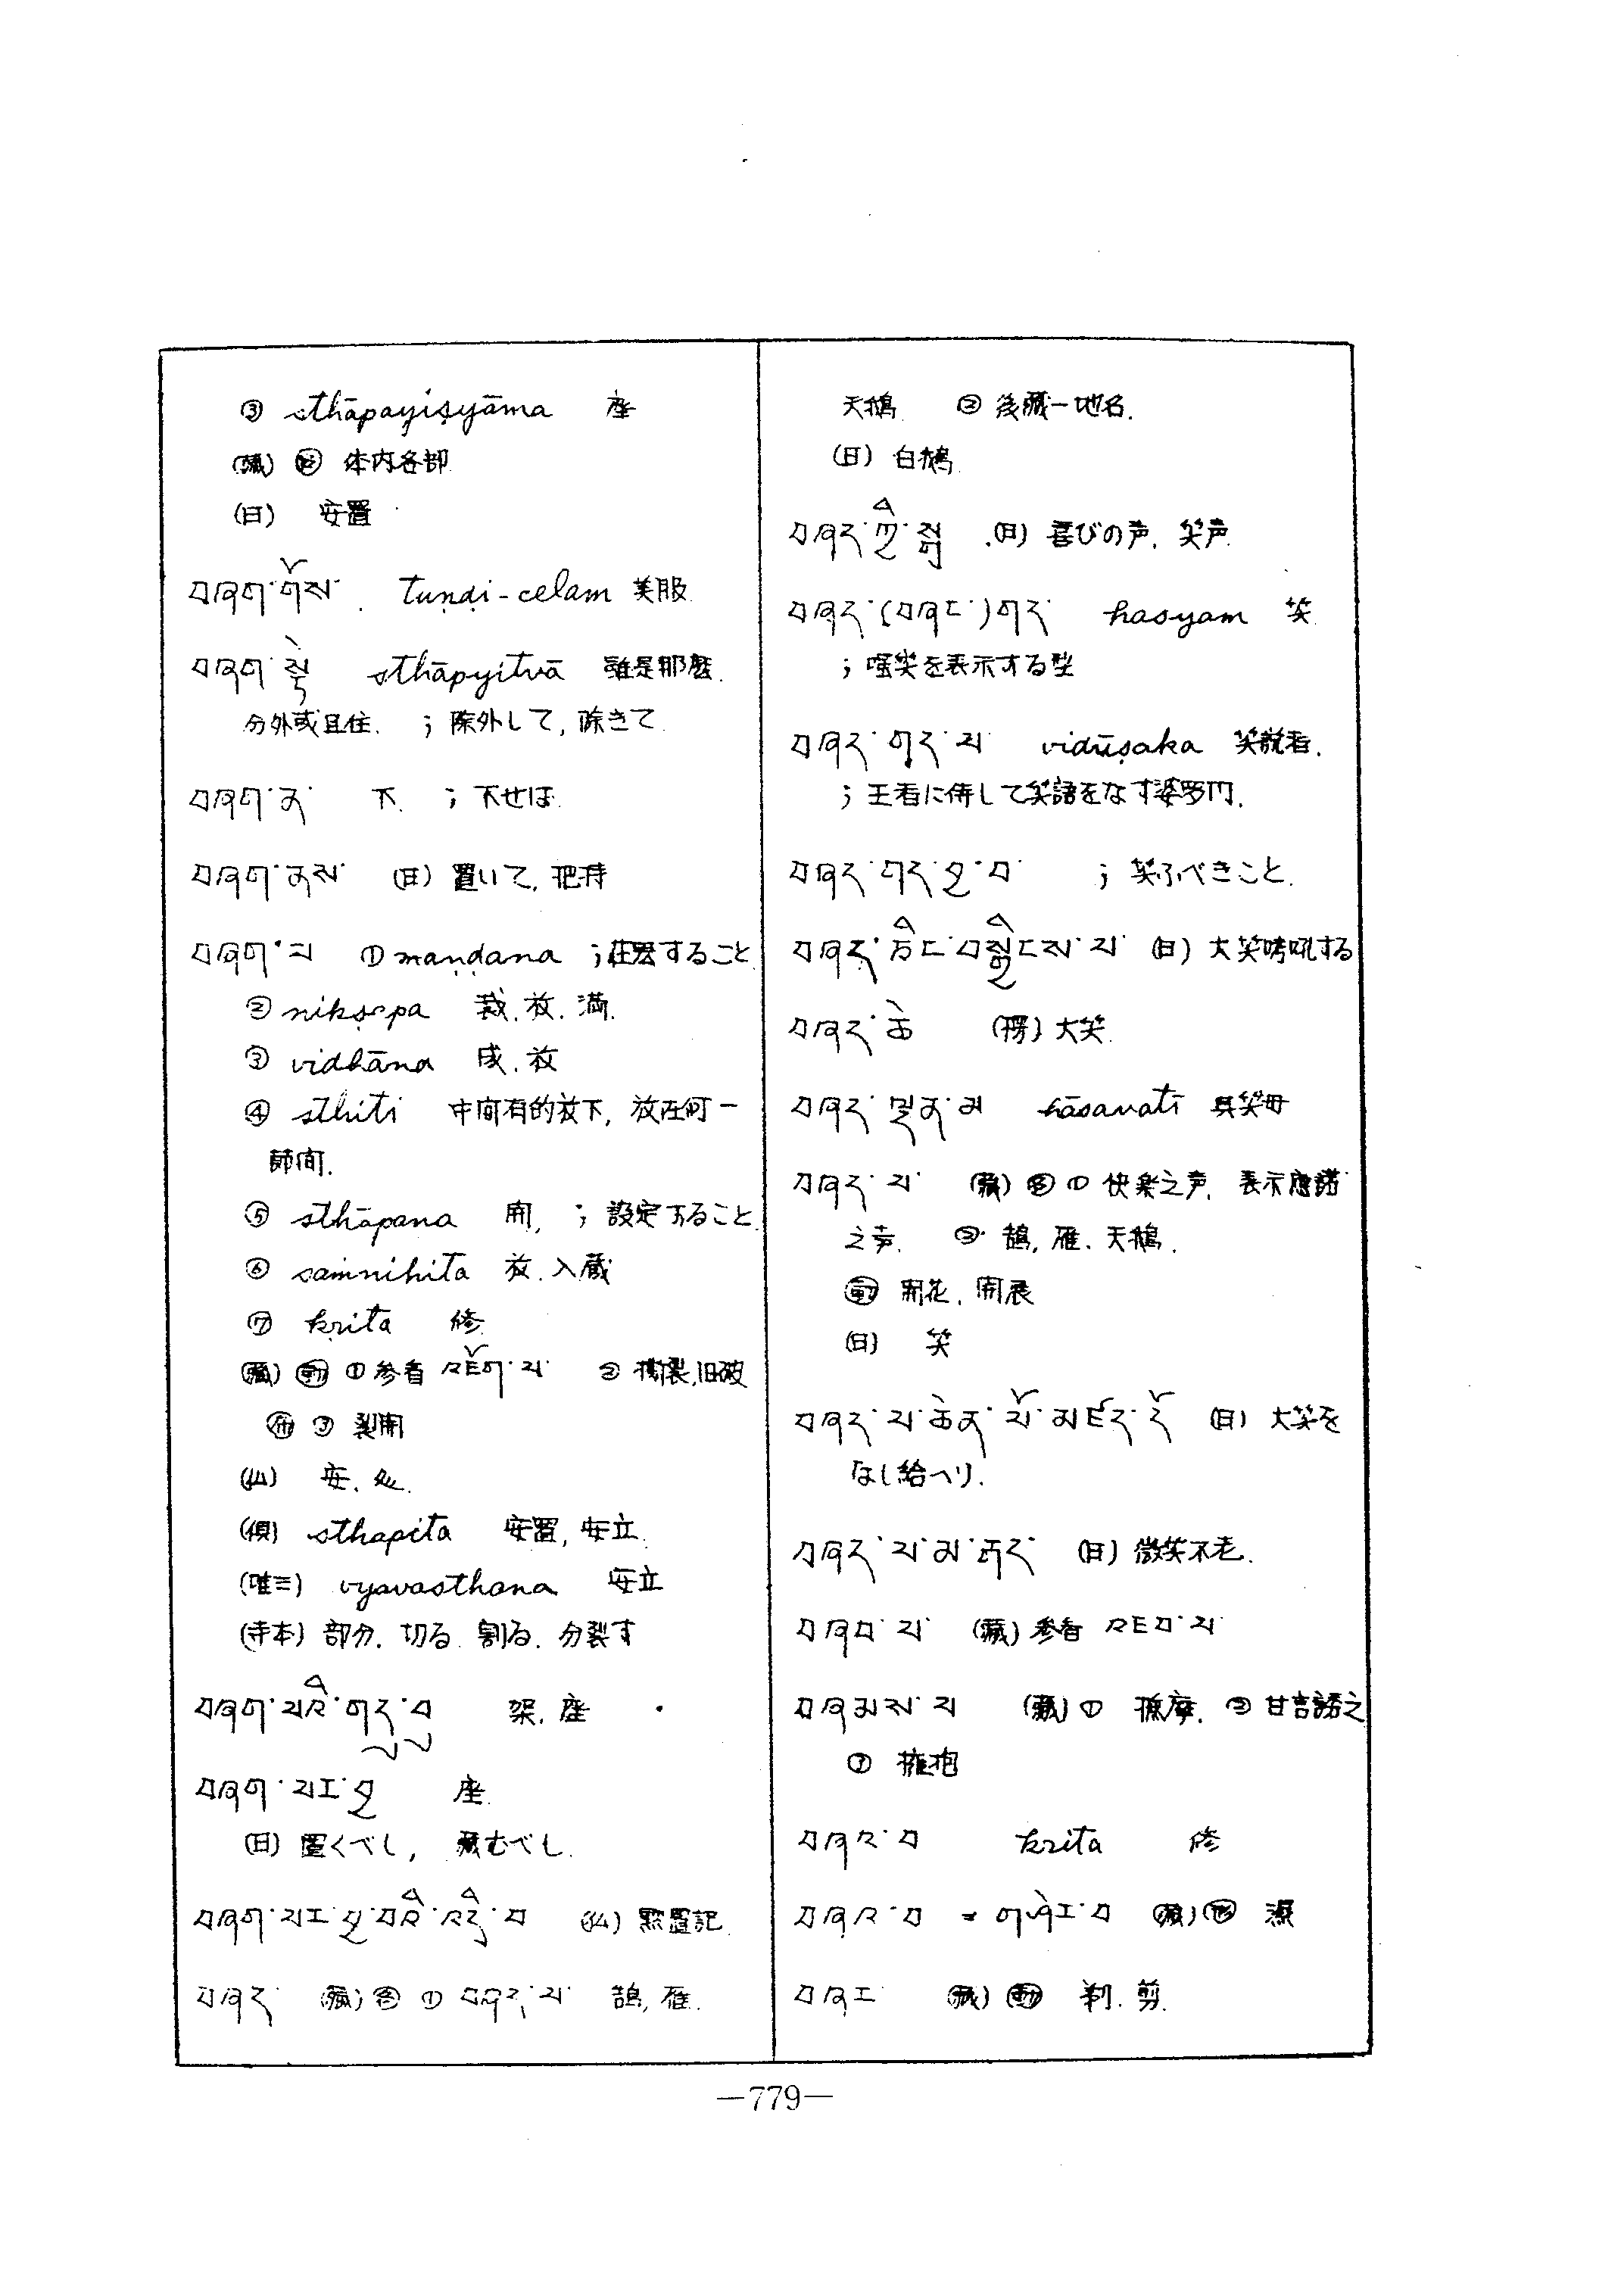 ③ sthāpayiṣyāma 座
(藏) 体内各部
(日) 安置
བཞག་གོས་ tuṇḍi-celam 美服
བཞག་སྟེ sthāpyitvā 雖是那麽.
分外或且住. ; 除外して, 除きて
བཞག་ན་ 下. ; 下せば
བཞག་ནས་ (日) 置いて, 把持
བཞག་པ ① maṇḍana ; 荘厳すること
② nikṣepa 裁. 放. 満.
③ vidhāna 成. 放
④ sthiti 中间有的放下, 放在何一
師间.
⑤ sthāpana 開, ; 設定すること
⑥ saṁnihita 放. 入蔵
⑦ kṛita 修
(藏) 動 ① 参看 འཇོག་པ་ ② 撕裂, 旧破
③ 裂開
(仏) 安. 处.
(倶) sthapita 安置, 安立.
(唯三) vyavasthana 安立
(寺本) 部分. 切る. 割る. 分裂す
བཞག་པའི་གདུ་བུ 架. 座
བཞག་པར་བྱ 座.
(日) 置くべし, 藏むべし.
བཞག་པར་བྱ་བའི་འདྲི་བ (仏) 黙置記.
བཞད (藏) 名 ① བཞད་པ་ 鵠, 雁.
天鵝 ② 後藏一地名.
(日) 白鵝
བཞད་ཀྱི་སྒྲ (日) 喜びの声. 笑声.
བཞད་(བཞང་)གད་ hasyam 笑
; 嗤笑を表示する型
བཞད་གད་པ vidūṣaka 笑説者.
; 王者に侍して笑語をなす婆羅门.
བཞད་གད་བྱ་བ་ ; 笑ふべきこと.
བཞད་ཅིང་བསྒྱིངས་པ་ (日) 大笑哮吼する
བཞད་ཆེ (楞) 大笑.
བཞད་ལྡན་མ hāsavatī 具笑母
བཞད་པ་ (藏) 名 ① 快楽之声. 表示應諾
之声. ② 鵠, 雁. 天鵝.
動 開花. 開展
(日) 笑
བཞད་པ་ཆེན་པོ་མཛད་དོ (日) 大笑を
なし給へり.
བཞད་པ་མ་ཏད་ (日) 微笑不老.
བཞབ་པ་ (藏) 参看 འཇབ་པ་
བཞམས་པ (藏) ① 撫摩. ② 甘言誘之
③ 擁抱
བཞའ་བ kṛita 修
བཞའ་བ = གཤེར་བ (藏) 形 濕
བཞར (藏) 動 剃. 剪.
—779—